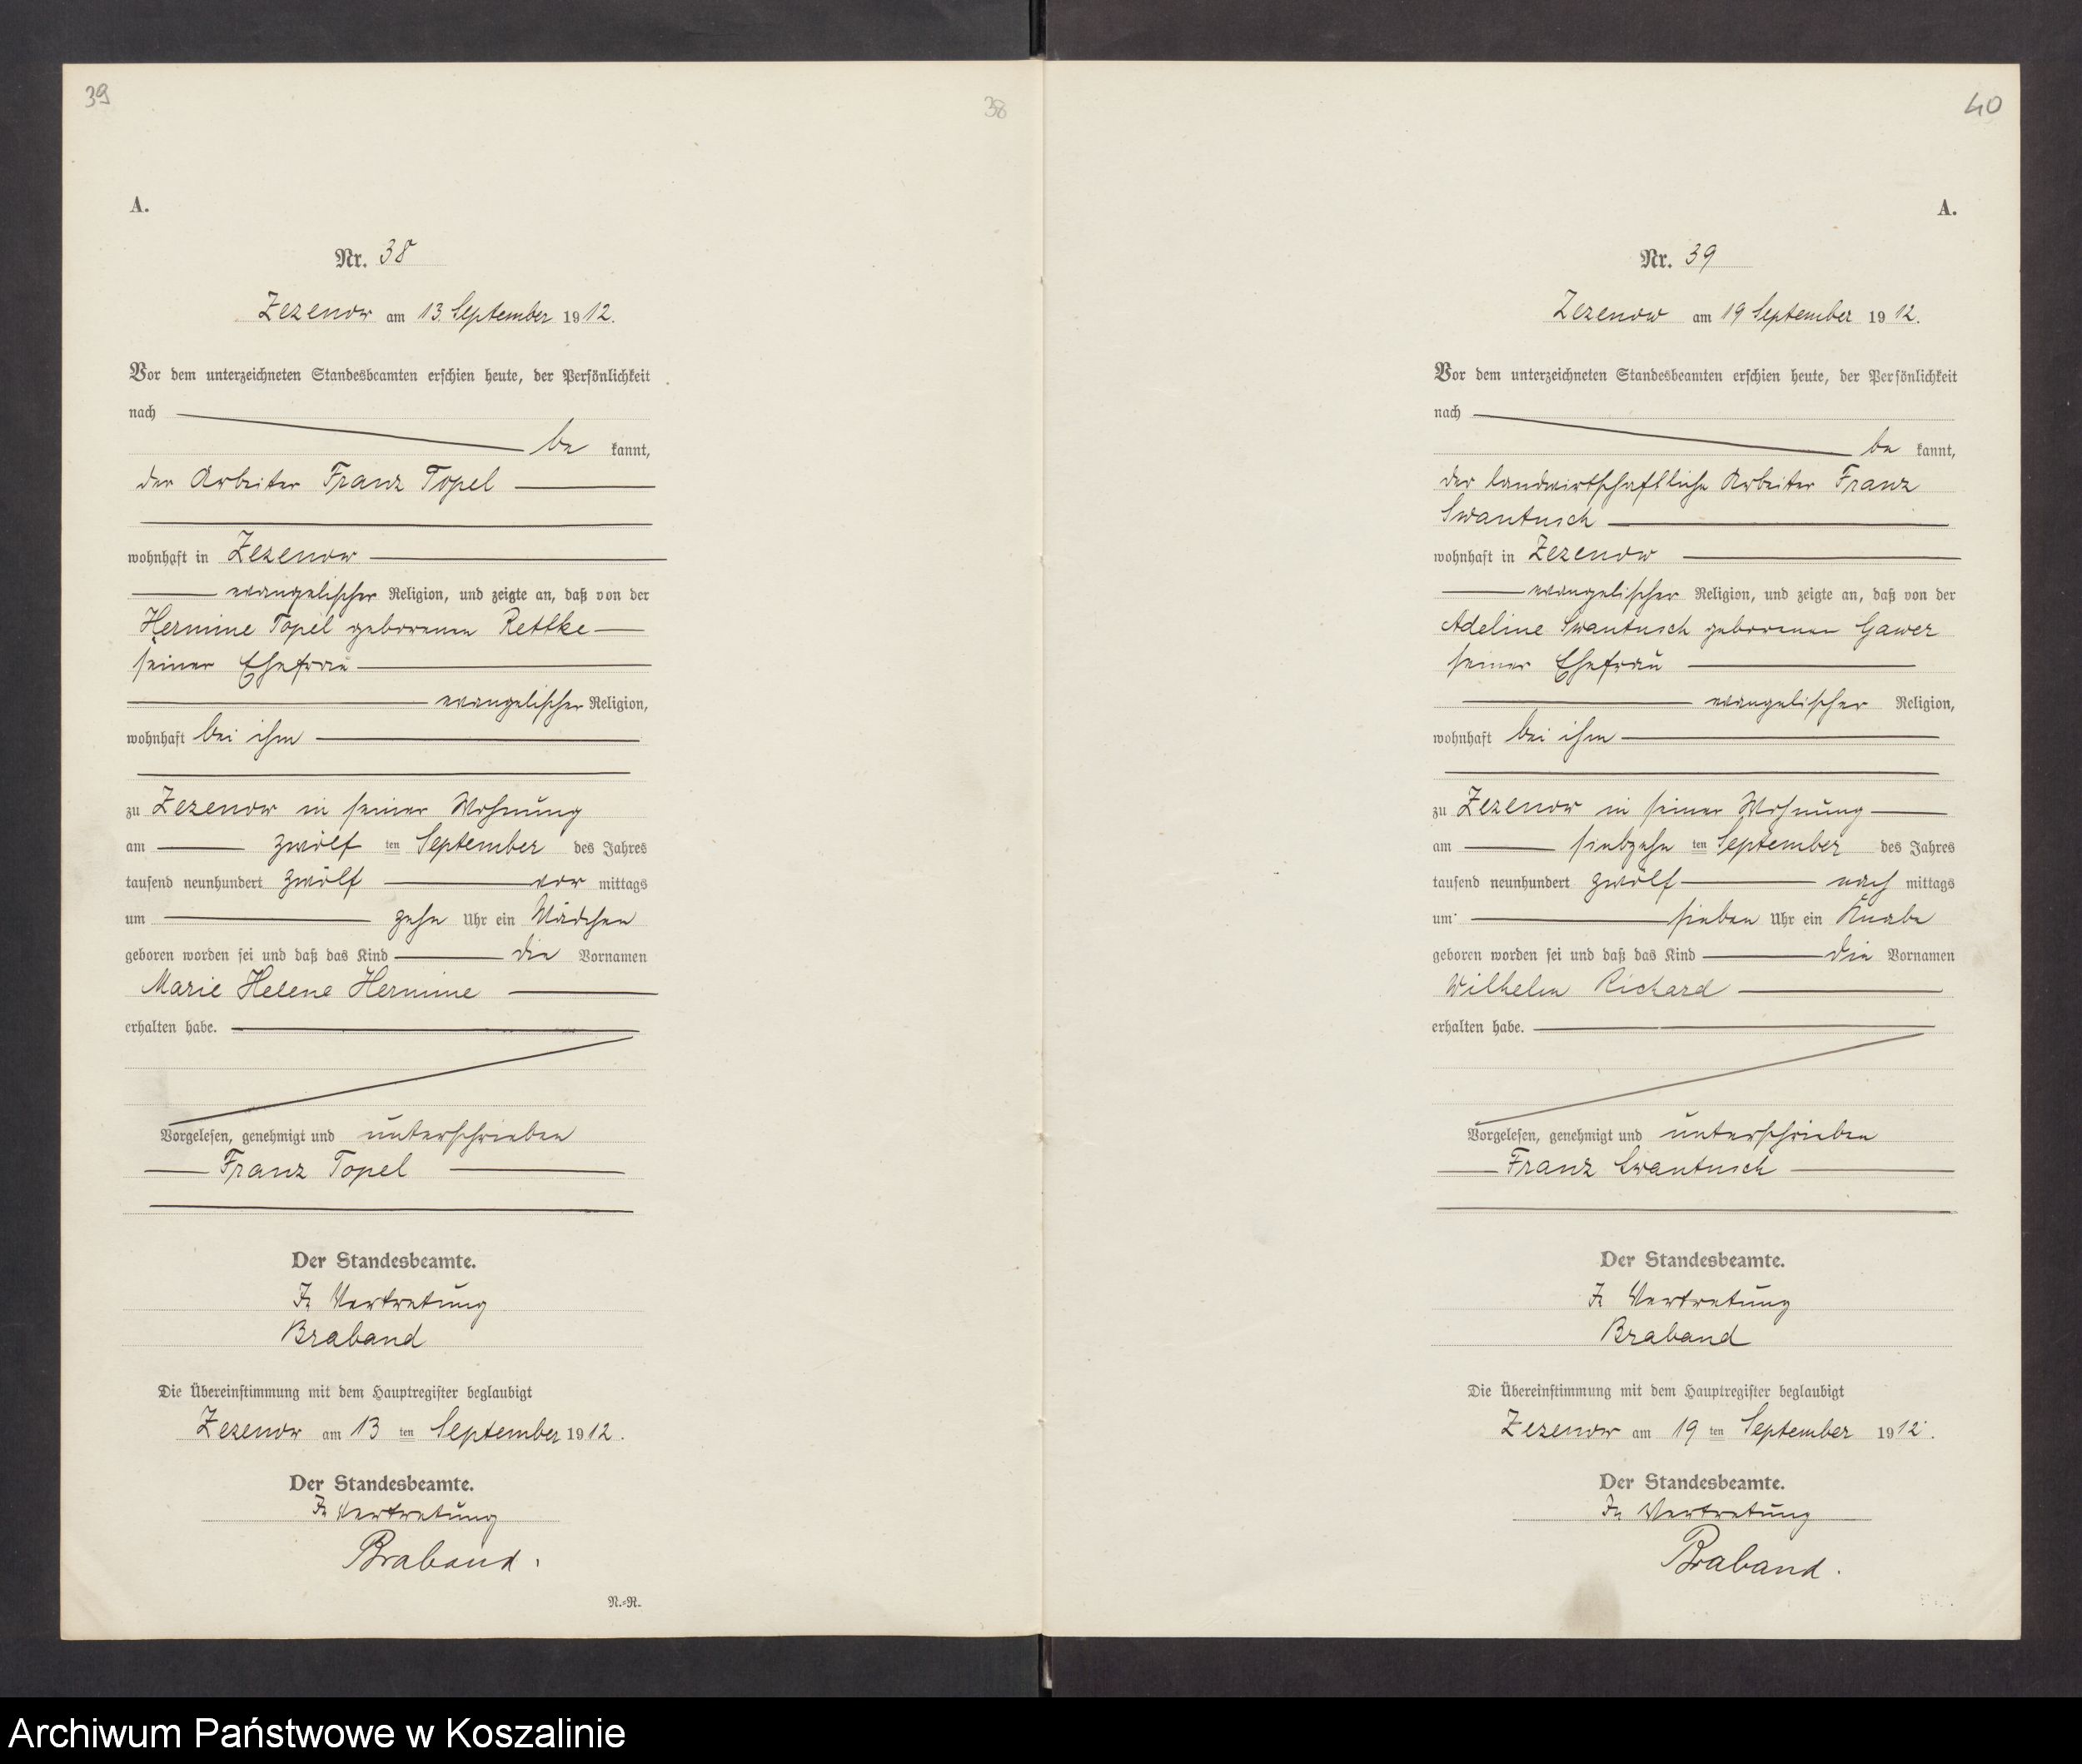 39
38
A.
Nr. 38
Zezenow am 13. September 1912.
Vor dem unterzeichneten Standesbeamten erschien heute, der Persönlichkeit
nach
be kannt,
der Arbeiter Franz Topel
wohnhaft in Zezenow
evangelischer Religion, und zeigte an, daß von der
Hermine Topel geborenen Rettke
seiner Ehefrau
evangelischer Religion,
wohnhaft bei ihm
zu Zezenow in seiner Wohnung
am zwölf ten September des Jahres
tausend neunhundert zwölf vor mittags
um zehn Uhr ein Mädchen
geboren worden sei und daß das Kind die Vornamen
Marie Helene Hermine
erhalten habe.
Vorgelesen, genehmigt und unterschrieben
Franz Topel
Der Standesbeamte.
In Vertretung
Braband
Die Übereinstimmung mit dem Hauptregister beglaubigt
Zezenow am 13 ten September 1912.
Der Standesbeamte.
In Vertretung
Braband.
N.-R.
40
A.
Nr. 39
Zezenow am 19 September 1912.
Vor dem unterzeichneten Standesbeamten erschien heute, der Persönlichkeit
nach
be kannt,
der landwirtschaftliche Arbeiter Franz
Swantusch
wohnhaft in Zezenow
evangelischer Religion, und zeigte an, daß von der
Adeline Swantusch geborenen Gawer
seiner Ehefrau
evangelischer Religion,
wohnhaft bei ihm
zu Zezenow in seiner Wohnung
am siebzehn ten September des Jahres
tausend neunhundert zwölf nach mittags
um sieben Uhr ein Knabe
geboren worden sei und daß das Kind die Vornamen
Wilhelm Richard
erhalten habe.
Vorgelesen, genehmigt und unterschrieben
Franz Swantusch
Der Standesbeamte.
In Vertretung
Braband
Die Übereinstimmung mit dem Hauptregister beglaubigt
Zezenow am 19 ten September 1912.
Der Standesbeamte.
In Vertretung
Braband.
Archiwum Państwowe w Koszalinie